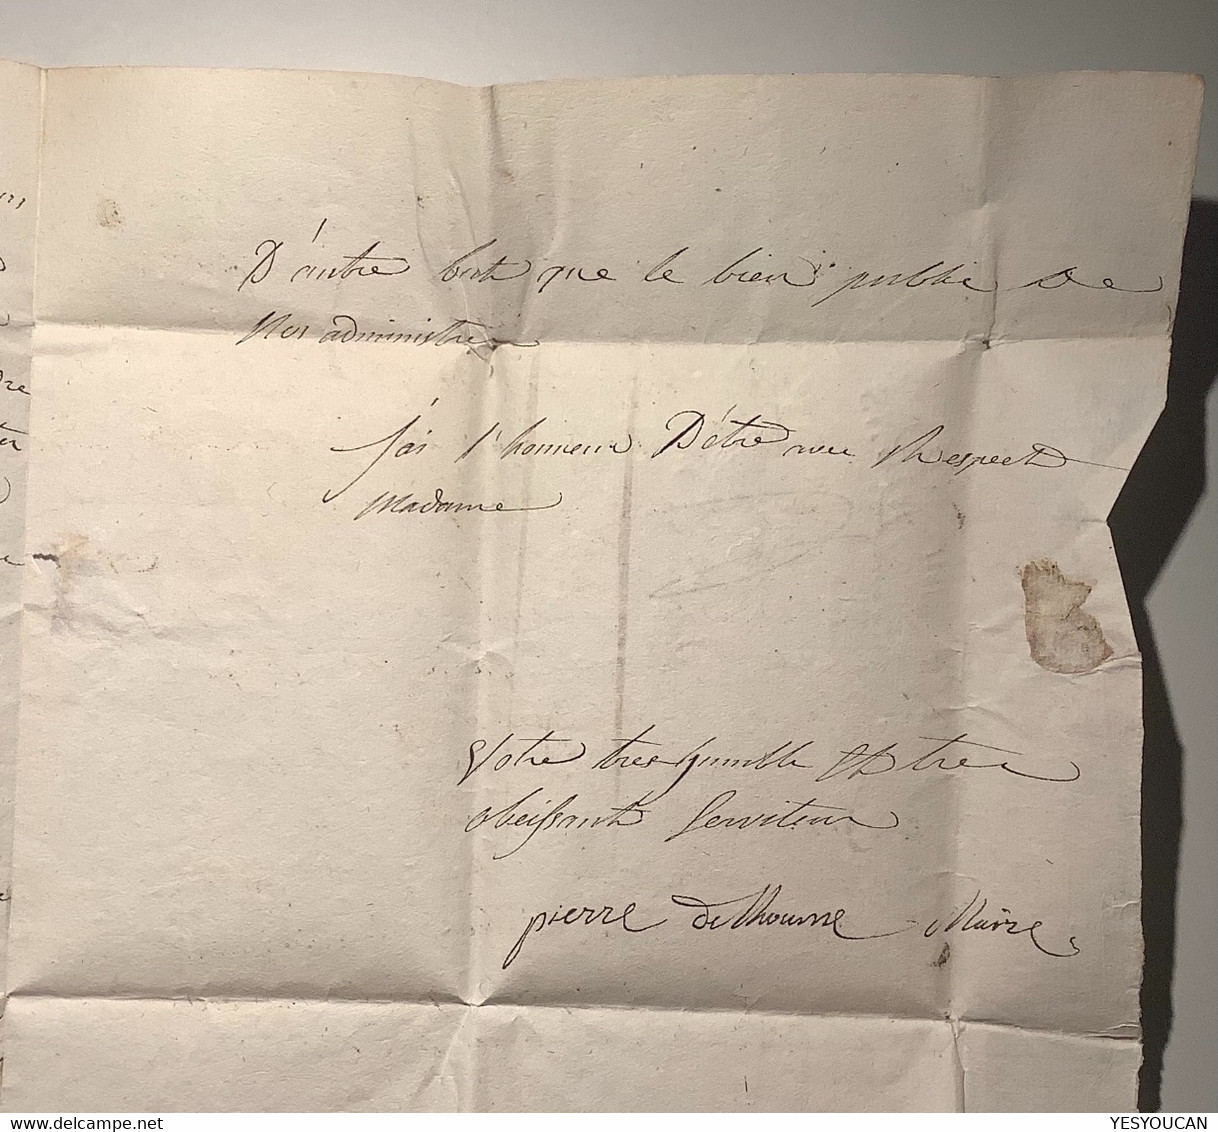 D'autre but que le bien public De
Nos administres
J'ai l'honneur D'être avec Respect
Madame
Votre tres humble Et tres
obeissant Serviteur
pierre delhoume Maire
www.delcampe.net
YESYOUCAN